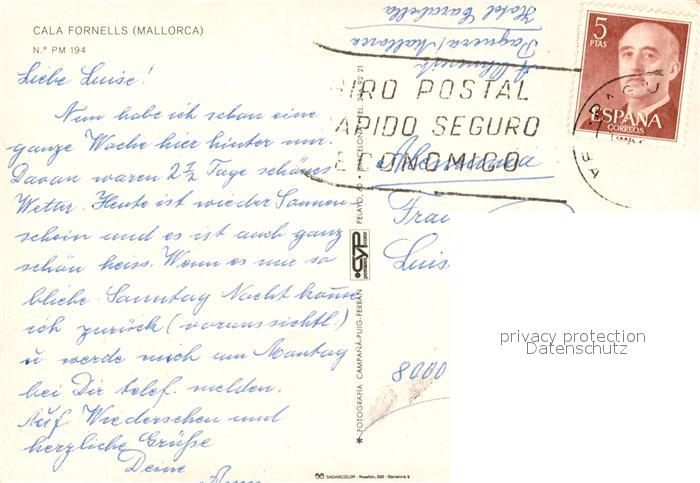 CALA FORNELLS (MALLORCA)
N.º PM 194
Liebe Luise!
Nun habe ich schon eine
ganze Woche hier hinter mir.
Davon waren 2½ Tage schönes
Wetter. Heute ist wieder Sonnen-
schein und es ist auch ganz
schön heiss. Wenn es nur so
bliebe. Sonntag Nacht komme
ich zurück (voraussichtl.)
u. werde mich am Montag
bei Dir telef. melden.
Auf Wiedersehen und
herzliche Grüße
Deine
Hotel Carabella
Paguera/Mallorca
GIRO POSTAL
RAPIDO SEGURO
ECONOMICO
5
PTAS
ESPAÑA
CORREOS
Alemania
Frau
Luis
8000
CYP
* FOTOGRAFIA CAMPAÑA-PUIG-FERRAN
PELAYO, 60 • BARCELONA
SADAGCOLOR - Rosellón, 298 - Barcelona
privacy protection
Datenschutz